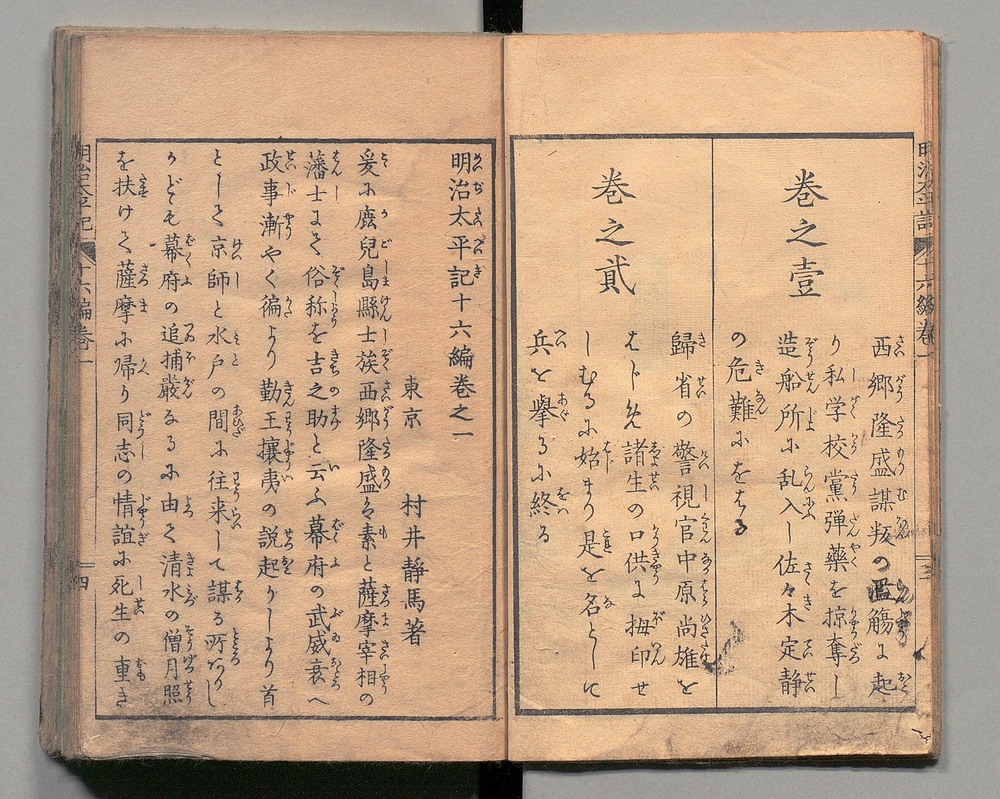 明治太平記 十六編巻一 三
巻之壹
西郷隆盛謀叛の濫觴に起
り私学校黨弾薬を掠奪し
造船所に乱入し佐々木定静
の危難にをはる
巻之貳
歸省の警視官中原尚雄を
はじめ諸生の口供に拇印せ
しむるに始まり是を名として
兵を擧るに終る
明治太平記十六編巻之一
東京 村井静馬著
爰に鹿兒島縣士族西郷隆盛ハ素と薩摩宰相の
藩士にて俗称を吉之助と云ふ幕府の武威衰へ
政事漸やく徧より勤王攘夷の説起りしより首
として京師と水戸の間に往来して謀る所ありし
かども幕府の追捕厳なるに由て清水の僧月照
を扶けて薩摩に帰り同志の情誼に死生の重き
明治太平記 十六編巻一 四